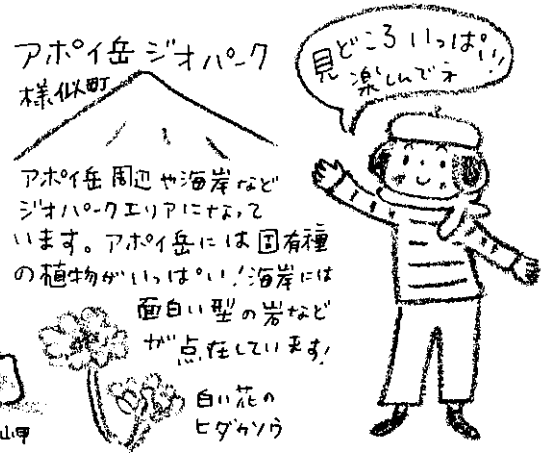 アポイ岳ジオパーク
様似町
見どころいっぱい!
楽しんでネ
アポイ岳周辺や海岸など
ジオパークエリアになって
います。アポイ岳には固有種
の植物がいっぱい!海岸には
面白い型の岩など
が点在しています!
白い花の
ヒダカソウ
岬